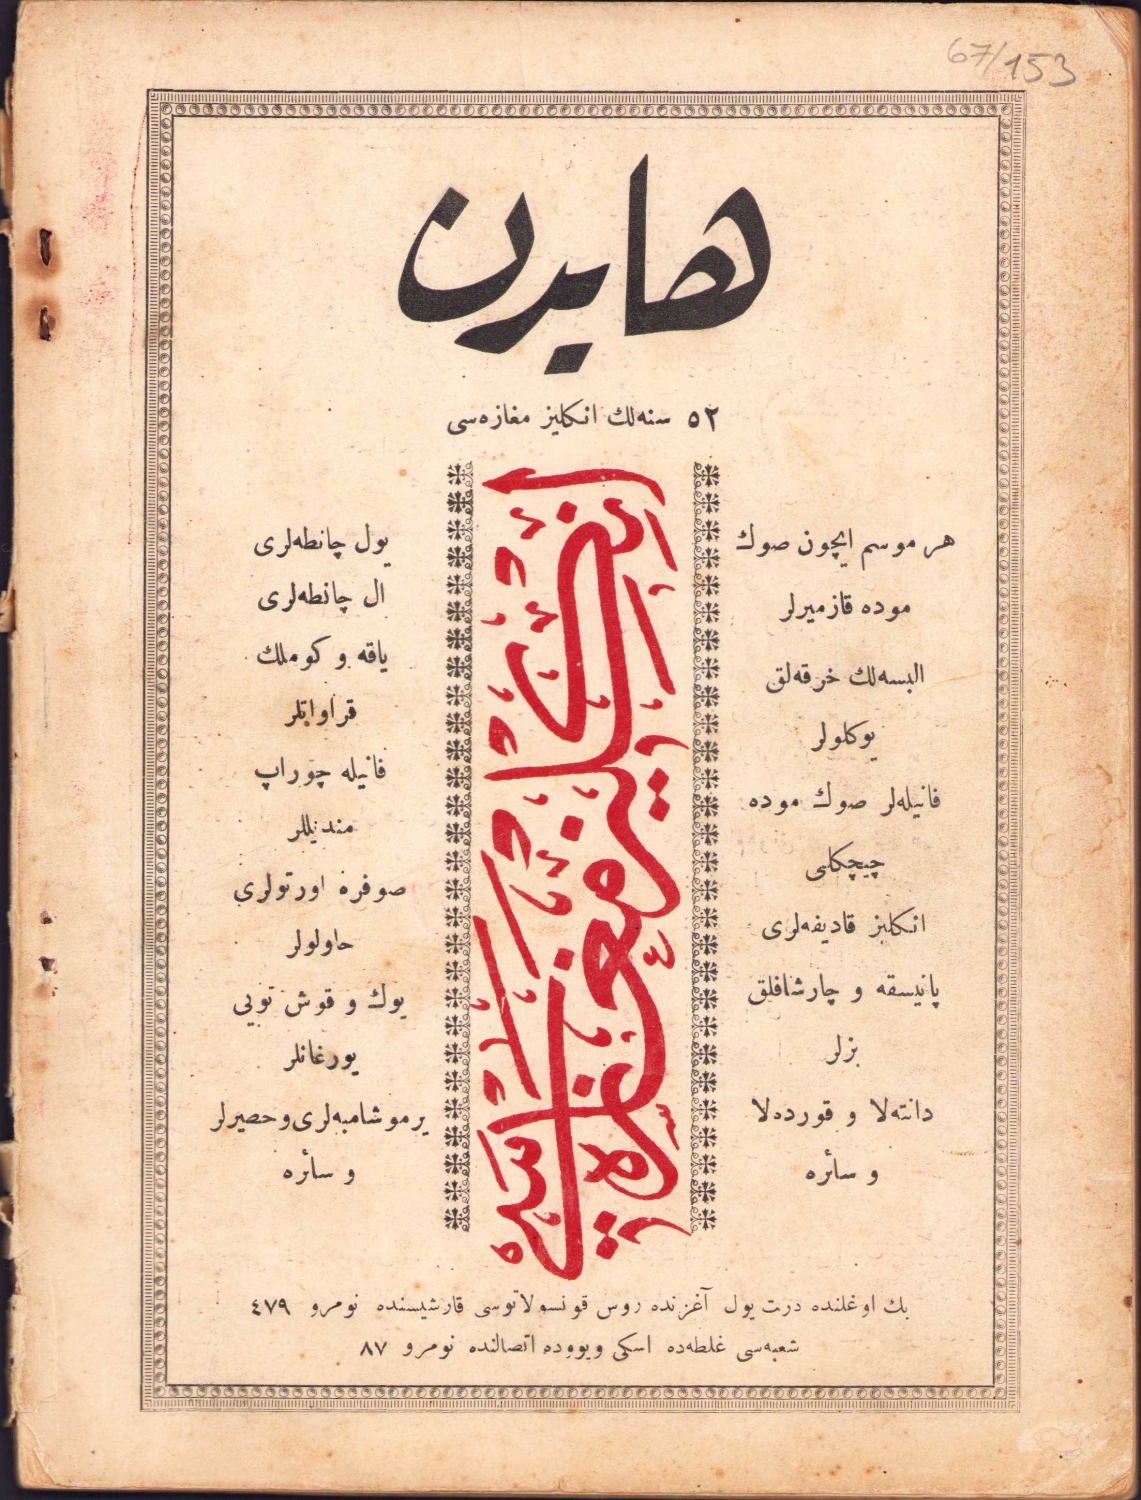 67/153
هايدن
٥٢ سنه‌لك انكليز مغازه‌سى
هر موسم ايچون صوك
موده قازميرلر
البسه‌لك خرقه‌لق
يوكلولر
فانيله‌لر صوك موده
چيچكلى
انكليز قاديفه‌لرى
پانيسقه و چارشافلق
بزلر
دانته‌لا و قورده‌لا
و سائره
انكليز مغازه‌سى
يول چانطه‌لرى
ال چانطه‌لرى
ياقه و كوملك
قراواتلر
فانيله چوراپ
منديللر
صوفره اورتولرى
حاولولر
يوك و قوش تويى
يورغانلر
يرموشامبه‌لرى وحصيرلر
و سائره
بك اوغلنده درت يول آغزنده روس قونسولاتوسى قارشيسنده نومرو ٤٧٩
شعبه‌سى غلطه‌ده اسكى ويووده اتصالنده نومرو ٨٧